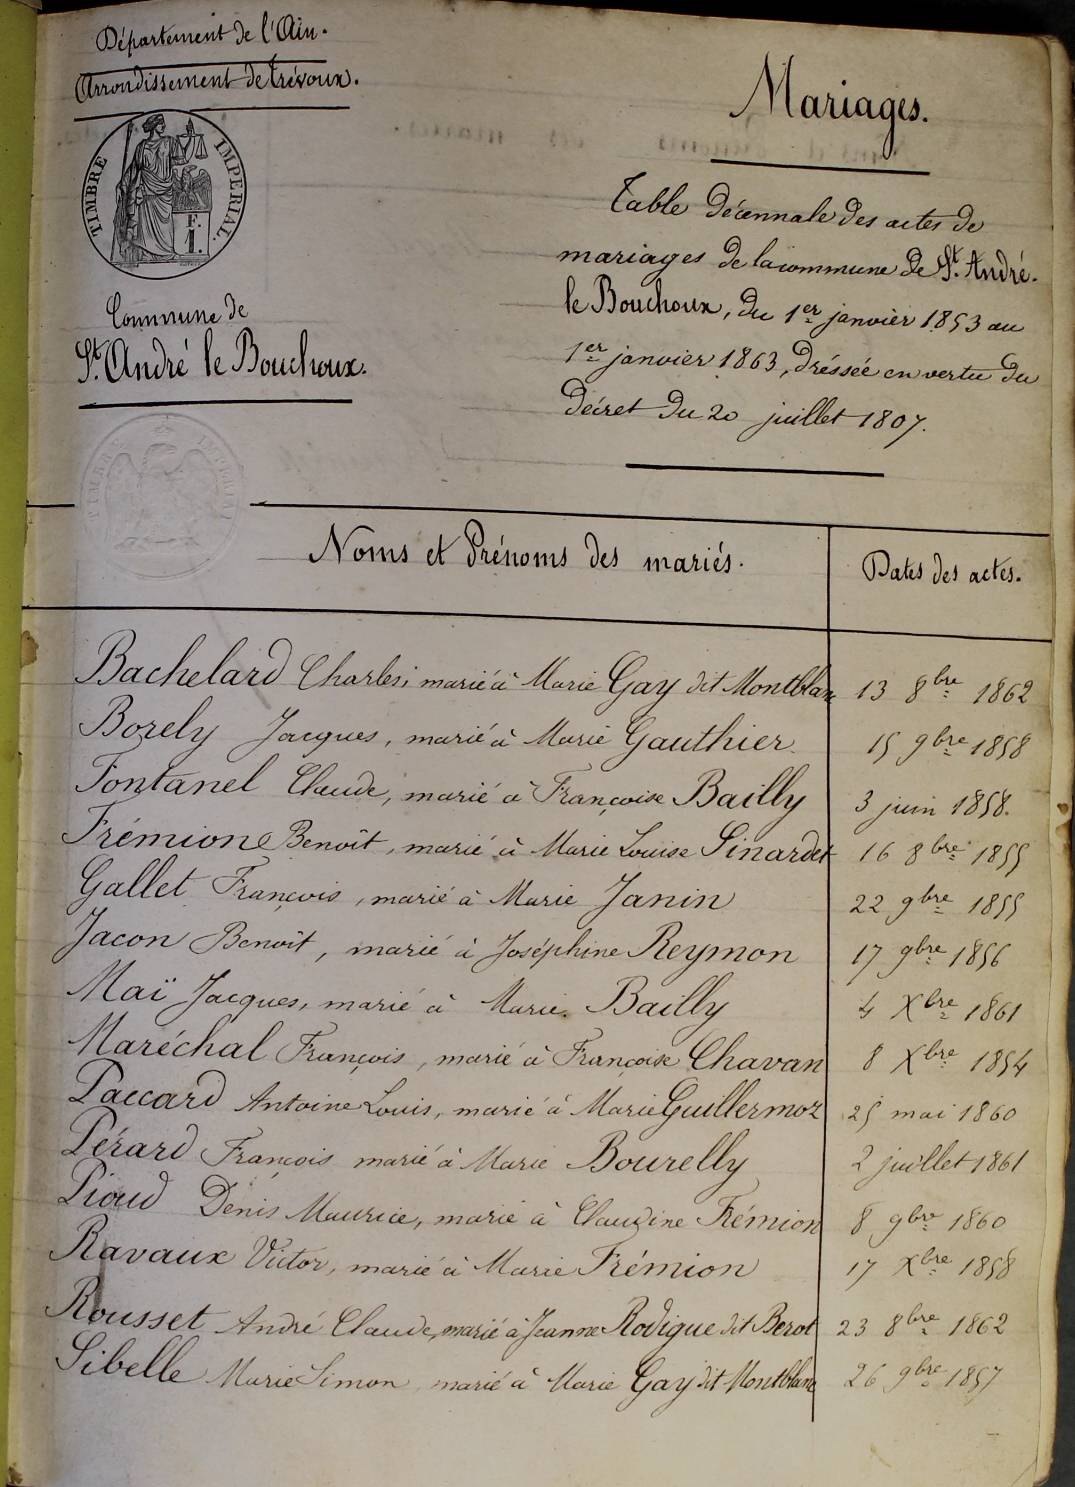 Département de l'Ain.
Arrondissement de Trévoux.
TIMBRE IMPERIAL.
F.
1.
Commune de
St. André le Bouchoux.
TIMBRE IMPERIAL
Mariages.
Table décennale des actes de
mariages de la commune de St. André.
le Bouchoux, du 1er janvier 1853 au
1er janvier 1863, dréssée en vertu du
décret du 20 juillet 1807.
Noms et Prénoms des mariés. Dates des actes.
Bachelard Charles, marié à Marie Gay dit Montblanc 13 8bre 1862
Borely Jacques, marié à Marie Gauthier 15 9bre 1858
Fontanel Claude, marié à Françoise Bailly 3 juin 1858.
Frémion Benoît, marié à Marie Louise Sinardet 16 8bre 1855
Gallet François, marié à Marie Janin 22 9bre 1855
Jacon Benoît, marié à Joséphine Reymon 17 9bre 1856
Maï Jacques, marié à Marie Bailly 4 Xbre 1861
Maréchal François, marié à Françoise Chavan 8 Xbre 1854
Paccard Antoine Louis, marié à Marie Guillermoz 25 mai 1860
Pérard François marié à Marie Bourelly 2 juillet 1861
Pioud Denis Maurice, marié à Claudine Frémion 8 9bre 1860
Ravaux Victor, marié à Marie Frémion 17 Xbre 1858
Rousset André Claude, marié à Jeanne Rodigue dit Berot 23 8bre 1862
Sibelle Marie Simon marié à Marie Gay dit Montblanc 26 9bre 1857